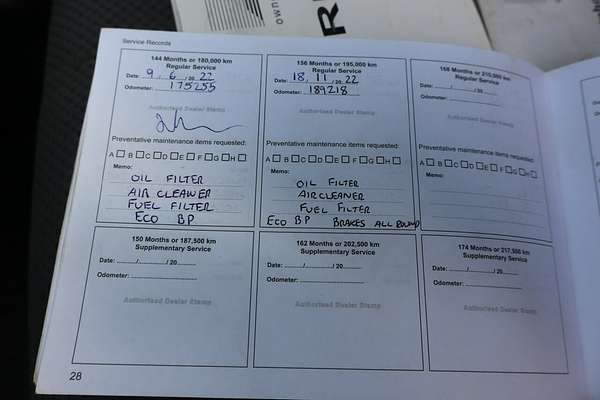 own
R
Service Records
144 Months or 180,000 km
Regular Service
Date: 9 / 6 / 20 22
Odometer: 175255
Authorised Dealer Stamp
Preventative maintenance items requested:
A B C D E F G H
Memo:
OIL FILTER
AIR CLEANER
FUEL FILTER
ECO BP
156 Months or 195,000 km
Regular Service
Date: 18 / 11 / 20 22
Odometer: 189218
Authorised Dealer Stamp
Preventative maintenance items requested:
A B C D E F G H
Memo:
OIL FILTER
AIRCLEANER
FUEL FILTER
ECO BP BRAKES ALL ROUND
168 Months or 210,000 km
Regular Service
Date: ....../....../ 20......
Odometer:
Authorised Dealer Stamp
Preventative maintenance items requested:
A B C D E F G H
Memo:
150 Months or 187,500 km
Supplementary Service
Date: ....../....../ 20......
Odometer:
Authorised Dealer Stamp
162 Months or 202,500 km
Supplementary Service
Date: ....../....../ 20......
Odometer:
Authorised Dealer Stamp
174 Months or 217,500 km
Supplementary Service
Date: ....../....../ 20......
Odometer:
Authorised Dealer Stamp
28